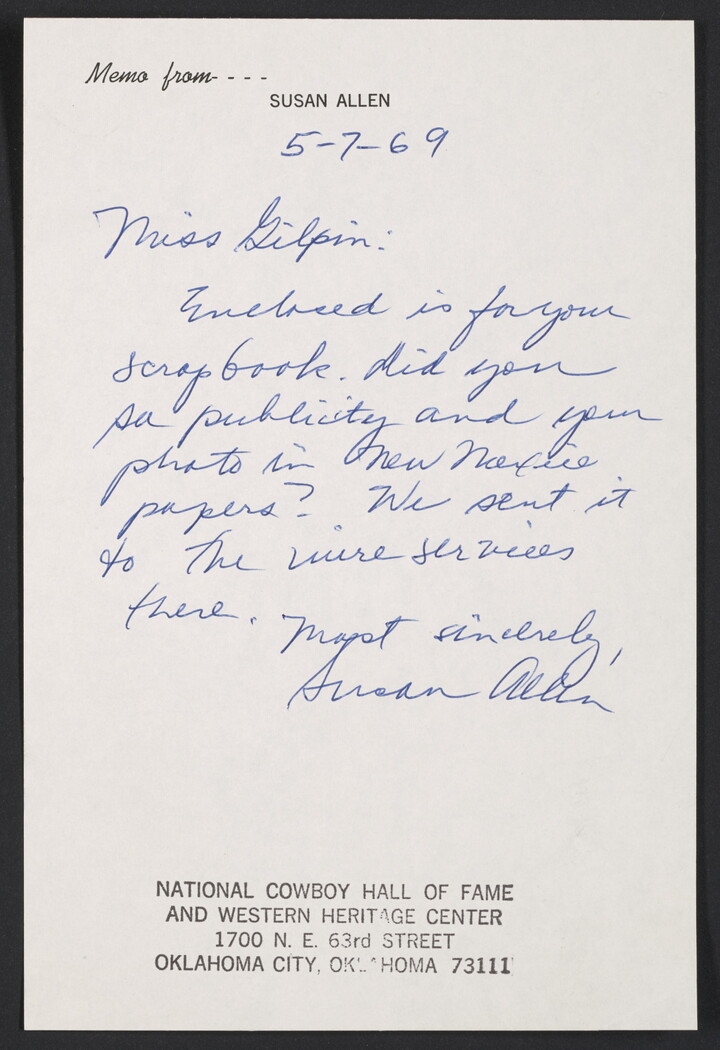 Memo from- - - -
SUSAN ALLEN
5-7-69
Miss Gilpin:
Enclosed is for your
scrapbook. Did you
see publicity and your
photo in New Mexico
papers? We sent it
to the wire services
there.
Most sincerely,
Susan Allen
NATIONAL COWBOY HALL OF FAME
AND WESTERN HERITAGE CENTER
1700 N. E. 63rd STREET
OKLAHOMA CITY, OKLAHOMA 73111